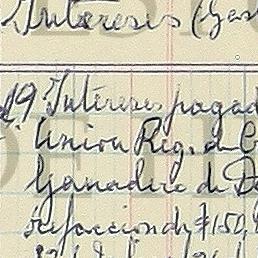 Intereses (Gas
19 Intereses pagad
Union Reg. de C
Ganadera de D
refacción de $150,